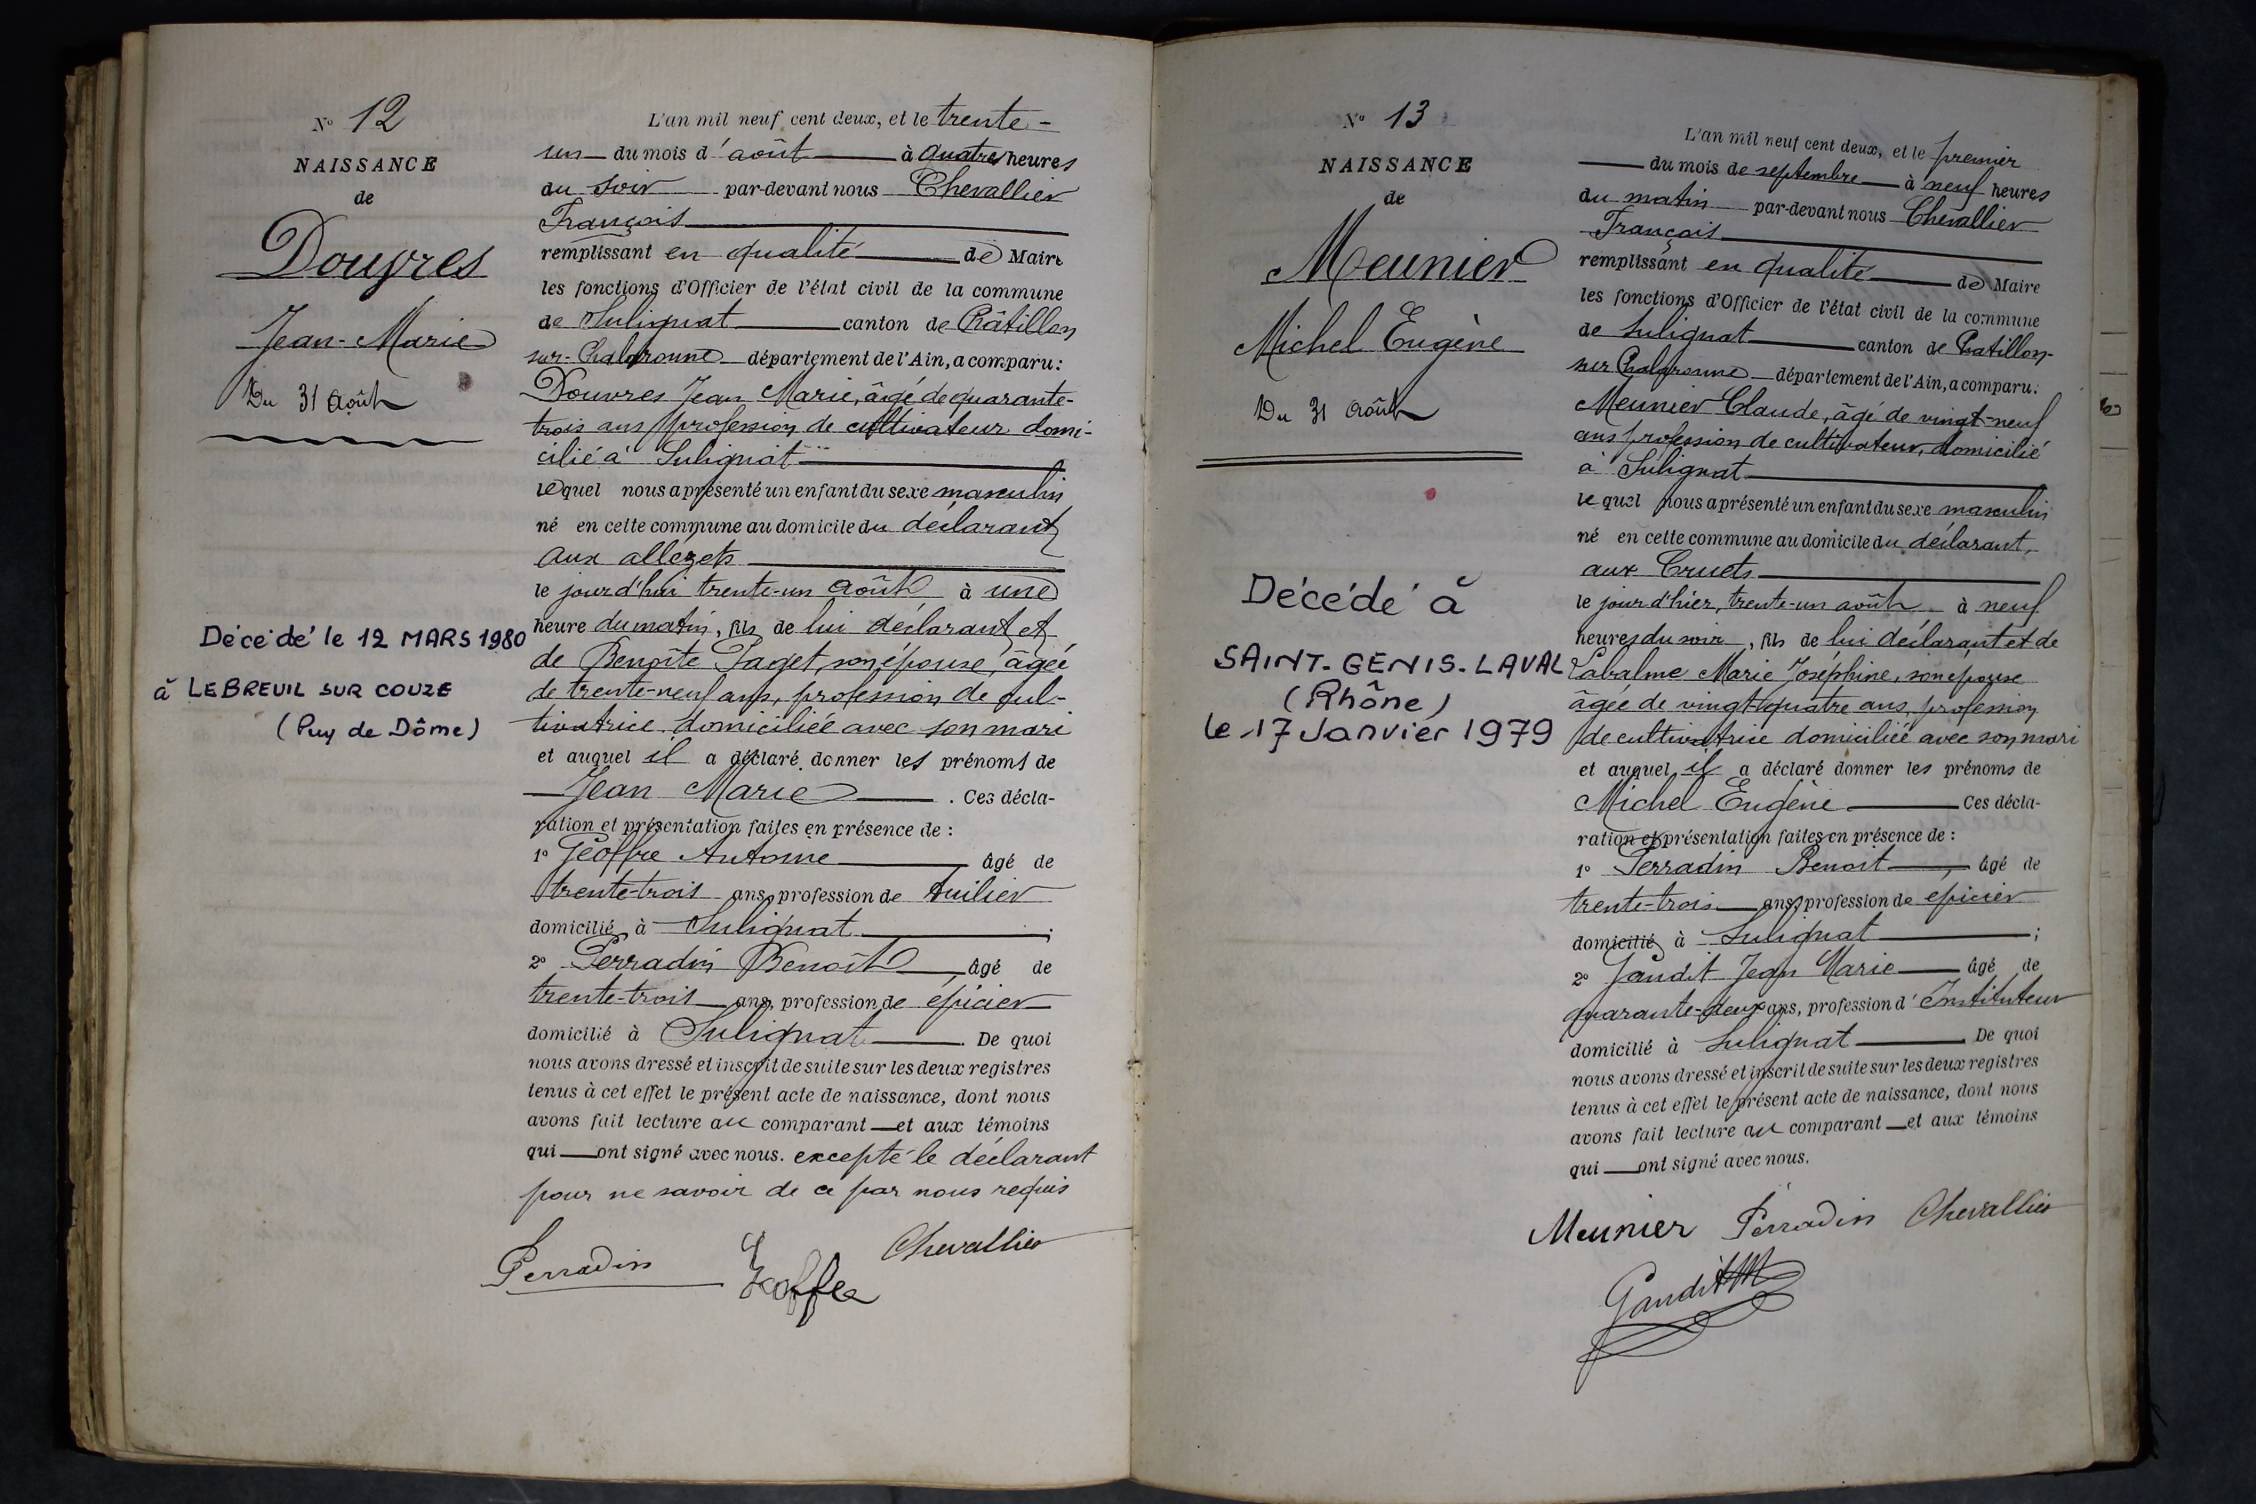 N° 12
NAISSANCE
de
Douvres
Jean-Marie
Du 31 Août
Décédé le 12 MARS 1980
à LE BREUIL SUR COUZE
(Puy de Dôme)
L'an mil neuf cent deux, et le trente-
un du mois d'août à quatre heures
du soir par-devant nous Chevallier
François
remplissant en qualité de Maire
les fonctions d'Officier de l'état civil de la commune
de Sulignat canton de Châtillon
sur-Chalaronne département de l'Ain, a comparu:
Douvres Jean Marie, âgé de quarante-
trois ans profession de cultivateur domi-
cilié à Sulignat
lequel nous a présenté un enfant du sexe masculin
né en cette commune au domicile du déclarant
aux allezets
le jour d'hui trente-un août à une
heure du matin, fils de lui déclarant et
de Benoîte Taget, son épouse, âgée
de trente-neuf ans, profession de cul-
tivatrice domiciliée avec son mari
et auquel il a déclaré donner les prénoms de
Jean Marie. Ces décla-
ration et présentation faites en présence de :
1° Geoffre Antoine âgé de
trente-trois ans, profession de tuilier
domicilié à Sulignat ;
2° Perradin Benoît, âgé de
trente-trois ans, profession de épicier
domicilié à Sulignat. De quoi
nous avons dressé et inscrit de suite sur les deux registres
tenus à cet effet le présent acte de naissance, dont nous
avons fait lecture au comparant et aux témoins
qui ont signé avec nous. excepté le déclarant
pour ne savoir de ce par nous requis
Perradin Chevallier
N° 13
NAISSANCE
de
Meunier
Michel Eugène
Du 31 Août
Décédé à
SAINT-GENIS-LAVAL
(Rhône)
le 17 Janvier 1979
L'an mil neuf cent deux, et le premier
du mois de septembre à neuf heures
du matin par-devant nous Chevallier
François
remplissant en qualité de Maire
les fonctions d'Officier de l'état civil de la commune
de Sulignat canton de Chatillon-
sur Chalaronne département de l'Ain, a comparu:
Meunier Claude, âgé de vingt-neuf
ans profession de cultivateur, domicilié
à Sulignat
lequel nous a présenté un enfant du sexe masculin
né en cette commune au domicile du déclarant,
aux Cruets
le jour d'hier, trente-un août à neuf
heures du soir, fils de lui déclarant et de
Labalme Marie Joséphine, son épouse
âgée de vingt-quatre ans, profession
de cultivatrice domiciliée avec son mari
et auquel il a déclaré donner les prénoms de
Michel Eugène Ces décla-
ration et présentation faites en présence de :
1° Perradin Benoit, âgé de
trente-trois ans, profession de epicier
domicilié à Sulignat ;
2° Gaudit Jean Marie âgé de
quarante-deux ans, profession d'Instituteur
domicilié à Sulignat. De quoi
nous avons dressé et inscrit de suite sur les deux registres
tenus à cet effet le présent acte de naissance, dont nous
avons fait lecture au comparant et aux témoins
qui ont signé avec nous.
Meunier Perradin Chevallier
Gaudit